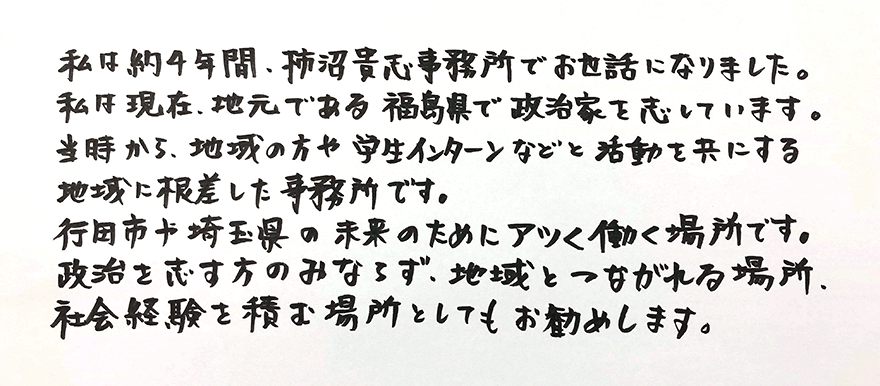 私は約4年間、柿沼貴志事務所でお世話になりました。
私は現在、地元である福島県で政治家を志しています。
当時から、地域の方や学生インターンなどと活動を共にする
地域に根差した事務所です。
行田市や埼玉県の未来のためにアツく働く場所です。
政治を志す方のみならず、地域とつながれる場所、
社会経験を積む場所としてもお勧めします。